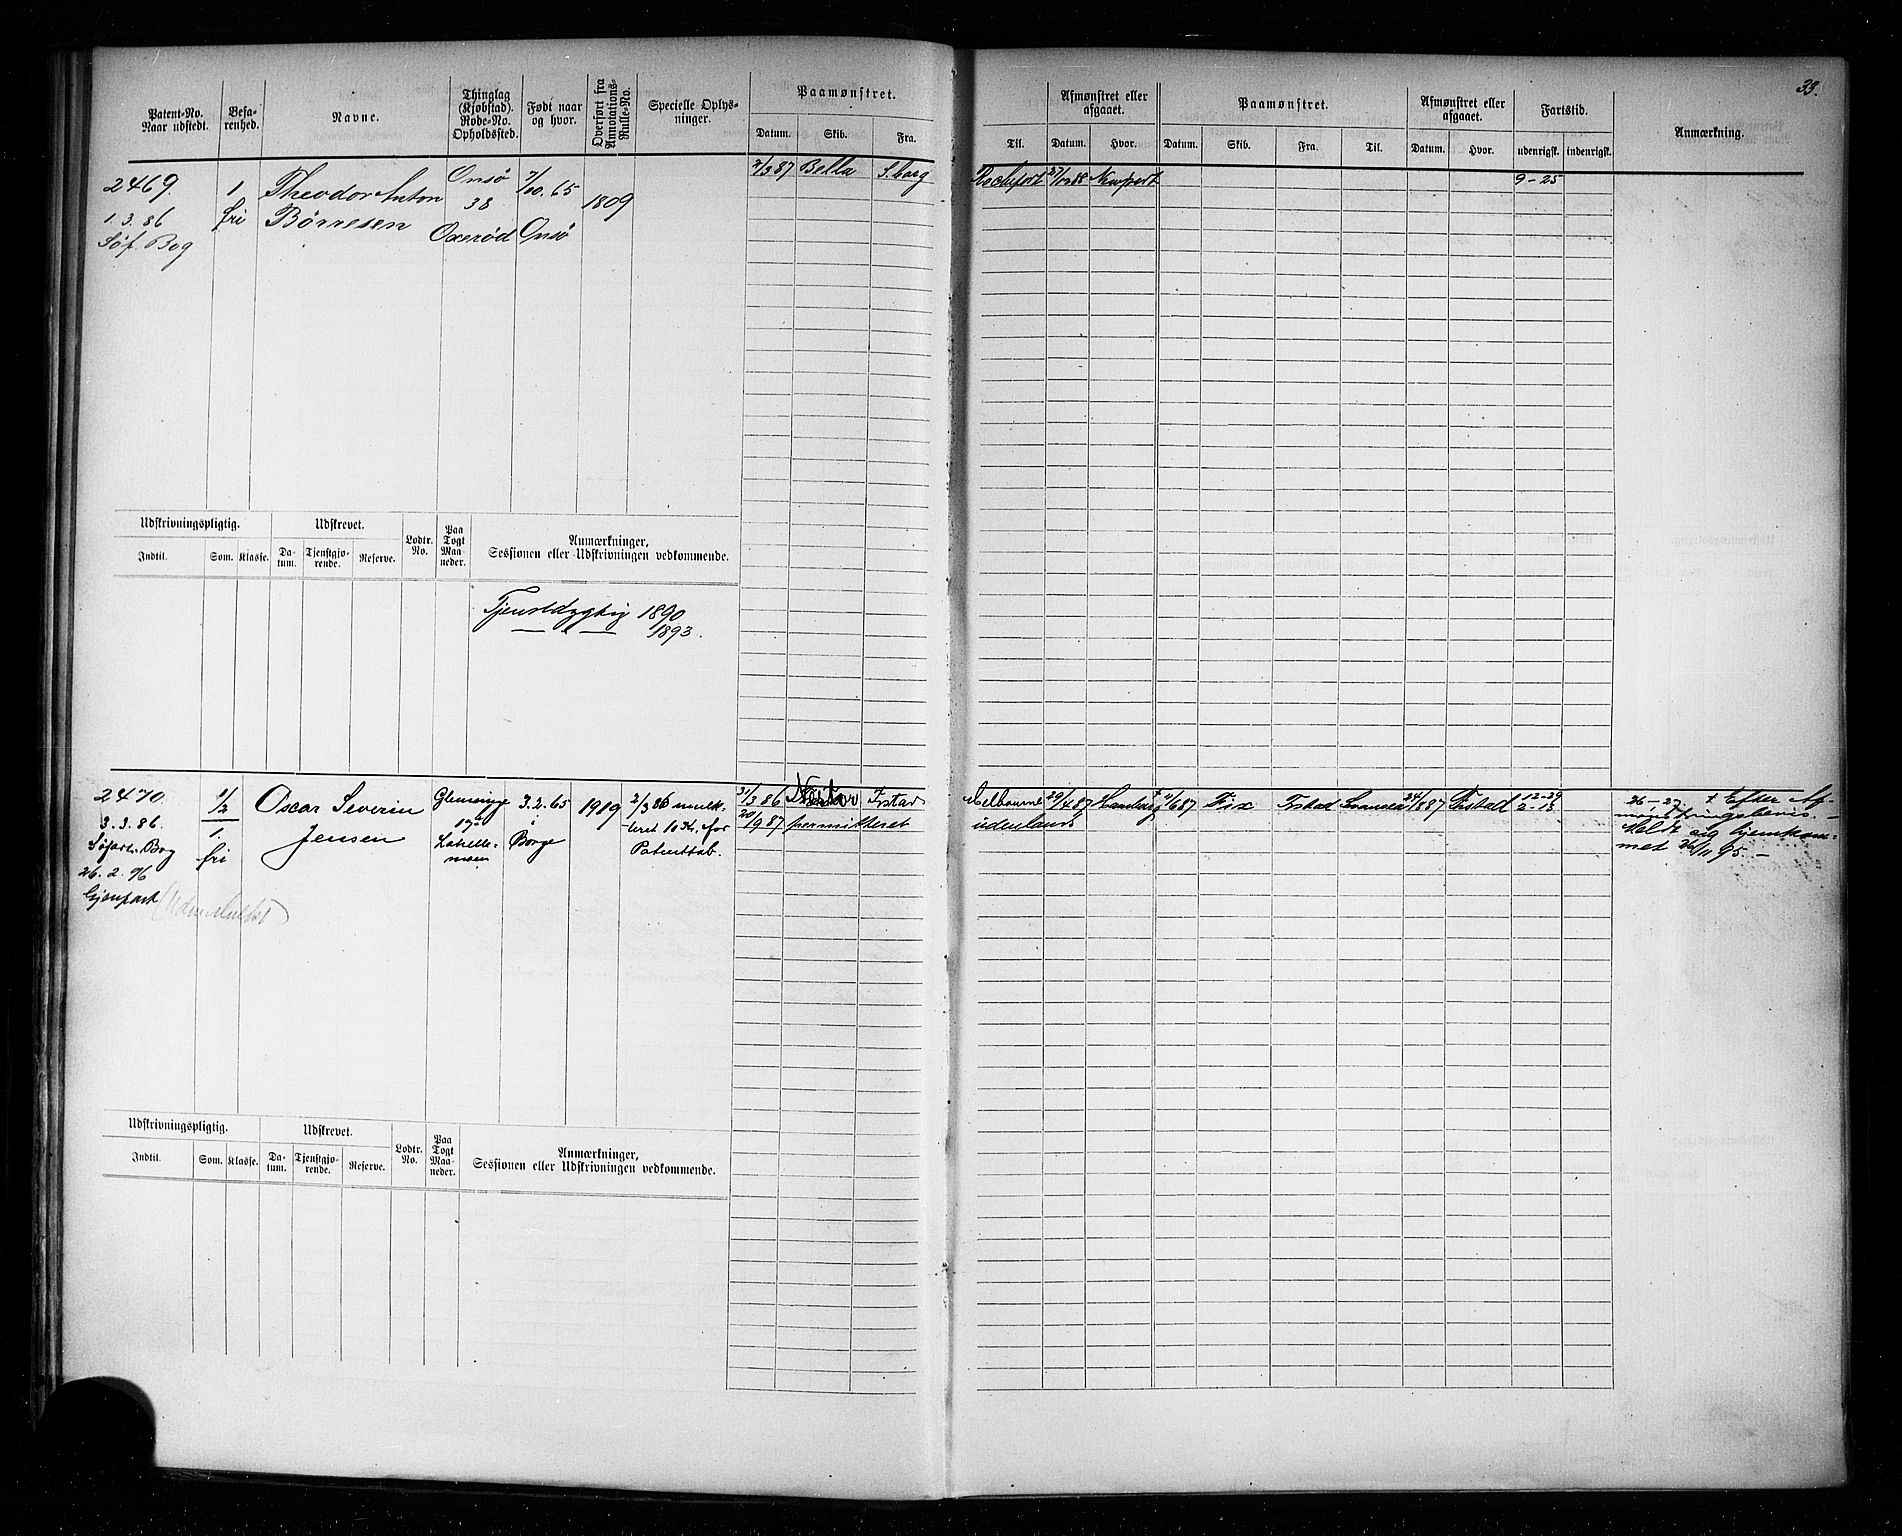 33.
Patent-No. Naar udstedt.
Befarenhed.
Navne.
Thinglag (Kjøbstad). Rode-No. Opholdssted.
Født naar og hvor.
Overført fra Annotations-Rulle-No.
Specielle Oplysninger.
Paamønstret.
Datum. Skib. Fra.
Til.
Afmønstret eller afgaaet.
Datum. Hvor.
Paamønstret.
Datum. Skib. Fra. Til.
Afmønstret eller afgaaet.
Datum. Hvor.
Fartstid.
udenrigsk. indenrigsk.
Anmærkning.
2469.
1.3.86
Søf. Bog
1
fri
Theodor Anton
Børresen
Onsø
38
Oxerød
7/10.65
Onsø
1809
2/3 87 Bella S.borg Rochefort 27/12 88 Newport 9-25
Udskrivningspligtig.
Indtil. Som. Klasse.
Udskrevet.
Datum. Tjenstgjørende. Reserve.
Lodtr. No.
Paa Togt Maaneder.
Anmærkninger, Sessionen eller Udskrivningen vedkommende.
Tjenstdygtig 1890
— " — 1893.
2470.
3.3.86.
Søfarts Bog
26.2.96
Gjenpart
1/2
1.
fri
Oscar Severin
Jensen
Glemminge
3.2.65
i
Borge
1989
2/3 86 mulk-
teret 10 Kr. for
Patenttab.
31/3 86 Nestor Fstad Melbourne 29/4 87 Hamburg 11/6 87 Fix Fstad Swansea 24/8 87 Fstad 12-29
20/9 87 permitteret udenlands 2-13
26-27. + Efter Af-
mønstringsbevis. —
Meldt sig hjemkom-
met 26/11 95. —
Udskrivningspligtig.
Indtil. Som. Klasse.
Udskrevet.
Datum. Tjenstgjørende. Reserve.
Lodtr. No.
Paa Togt Maaneder.
Anmærkninger, Sessionen eller Udskrivningen vedkommende.